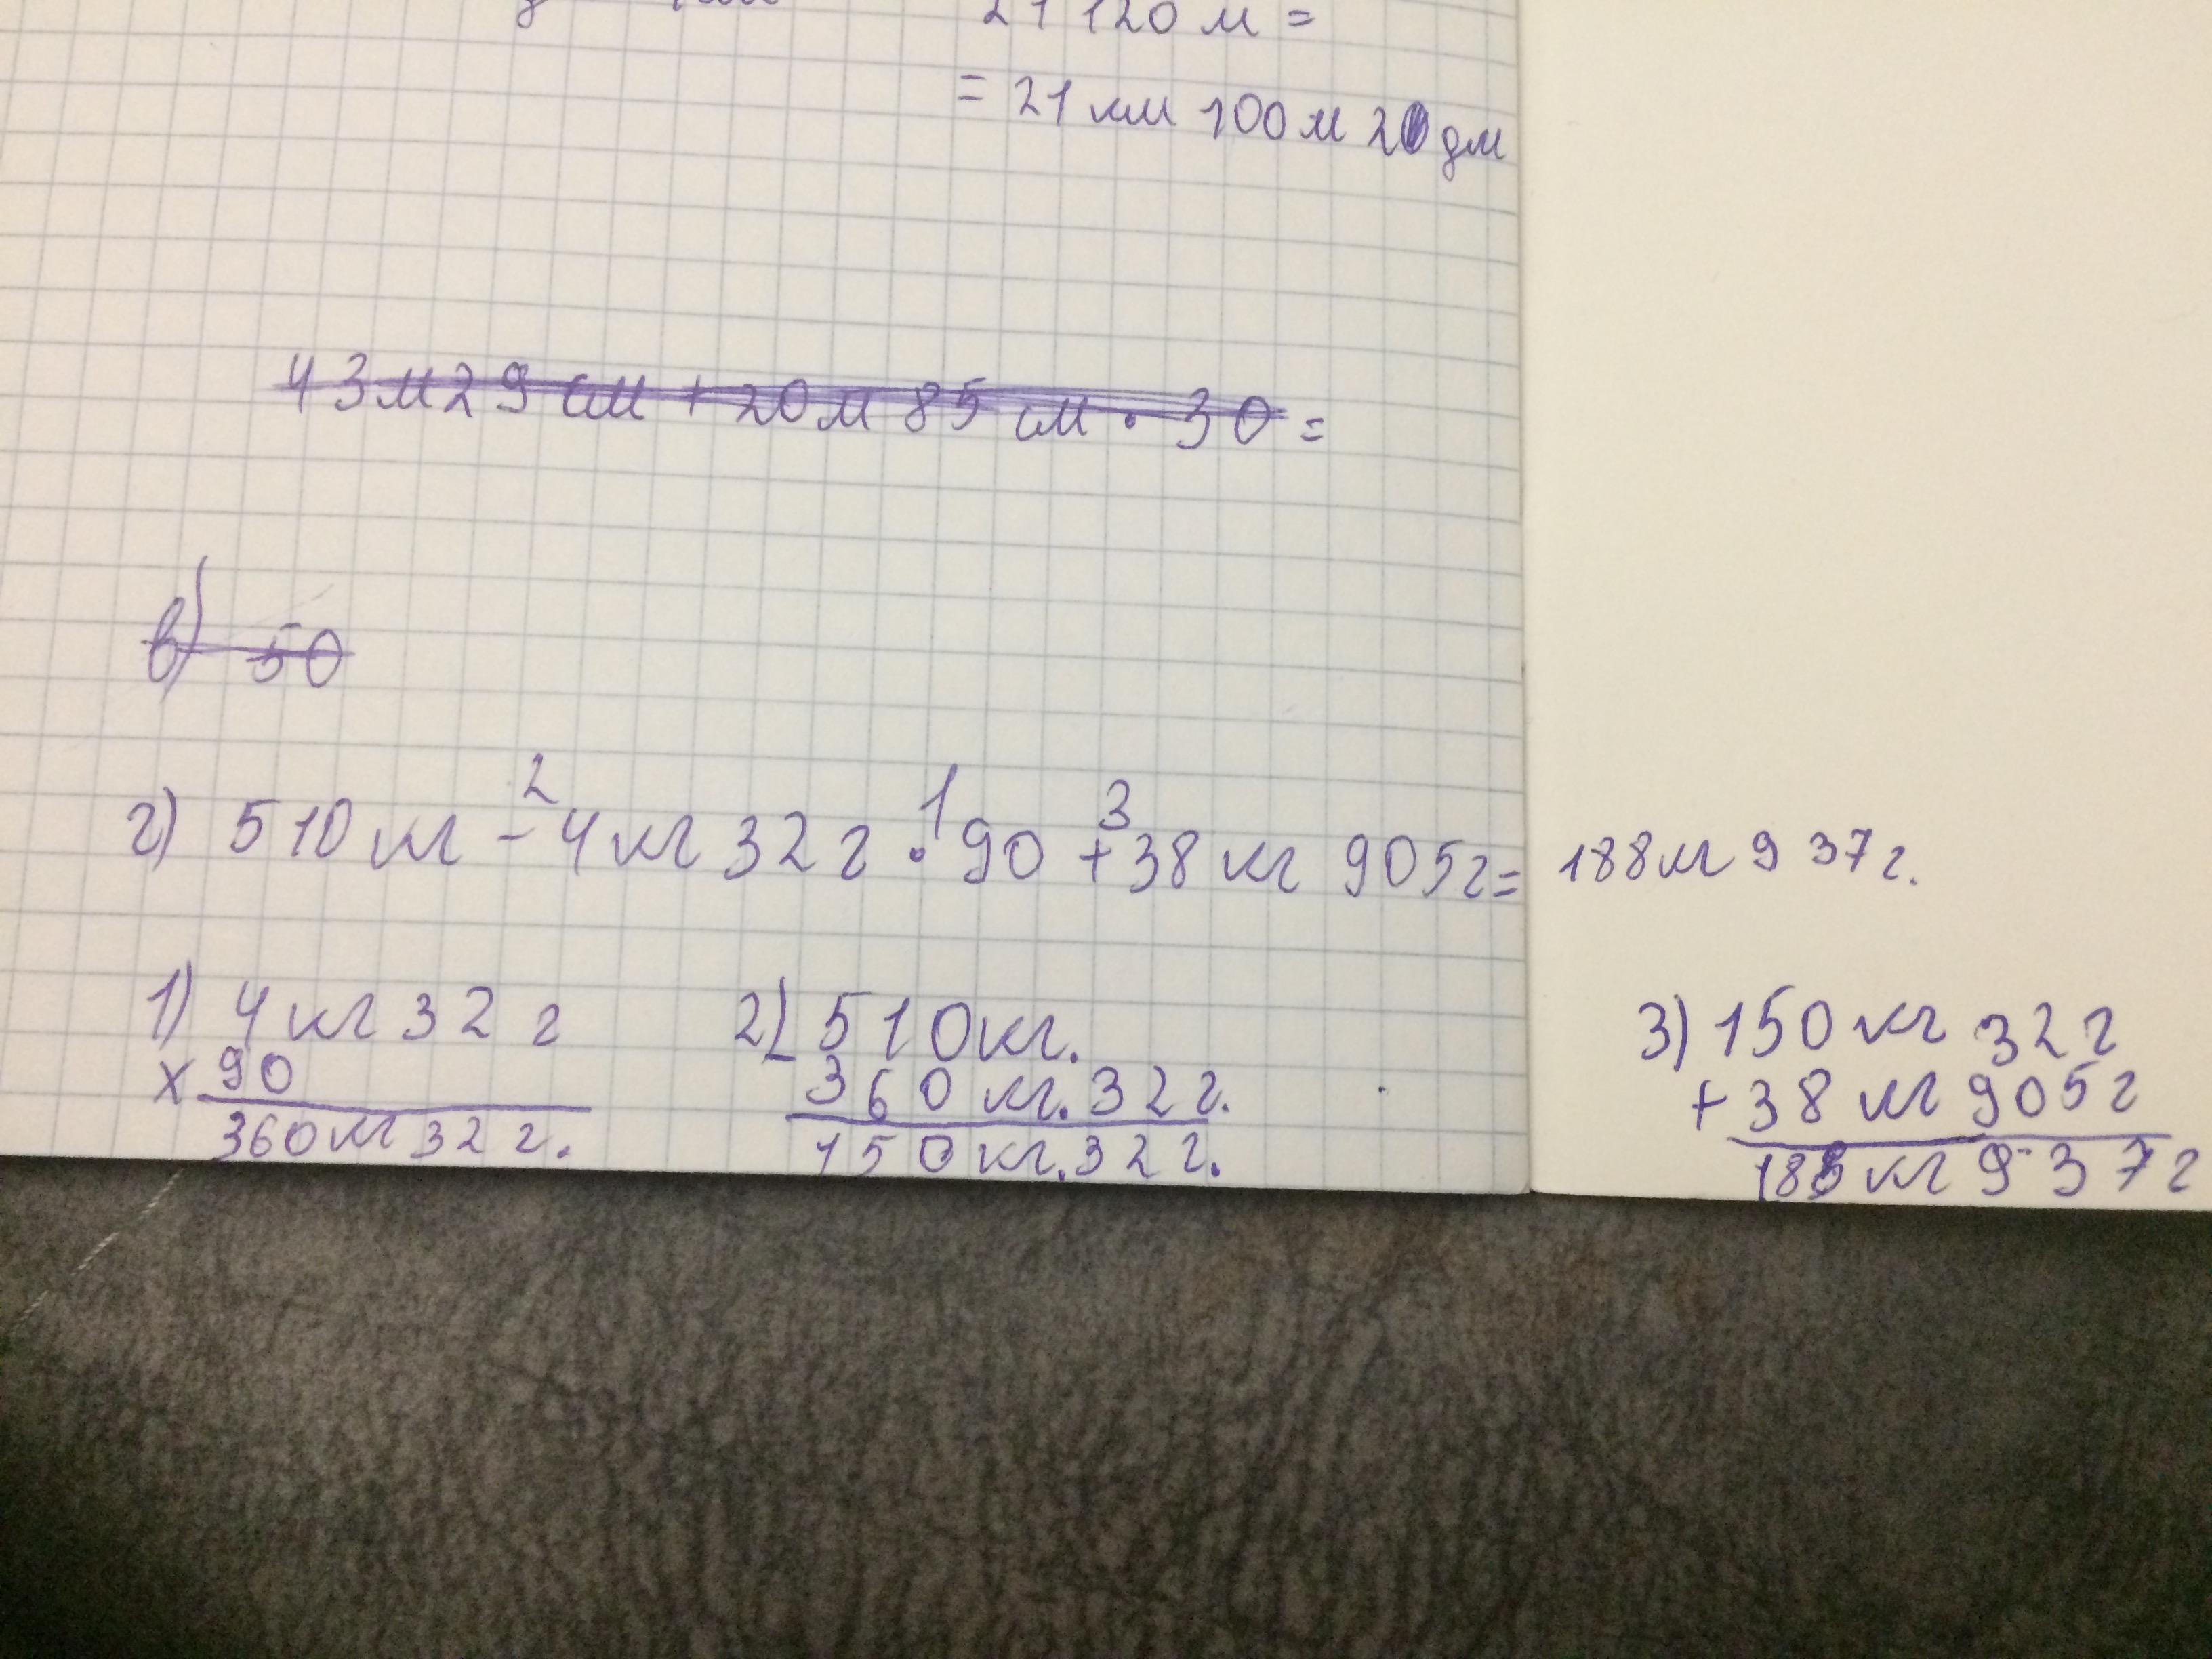 21120 м =
= 21 км 100 м 20 дм
43 м 29 см + 20 м 85 см · 30 =
в) 50
2 1 3
г) 510 кг - 4 кг 32 г · 90 + 38 кг 905 г = 188 кг 937 г.
1) 4 кг 32 г
× 90
360 кг 32 г.
2) - 510 кг.
360 кг. 32 г.
150 кг. 32 г.
3) 150 кг 32 г
+ 38 кг 905 г
188 кг 937 г